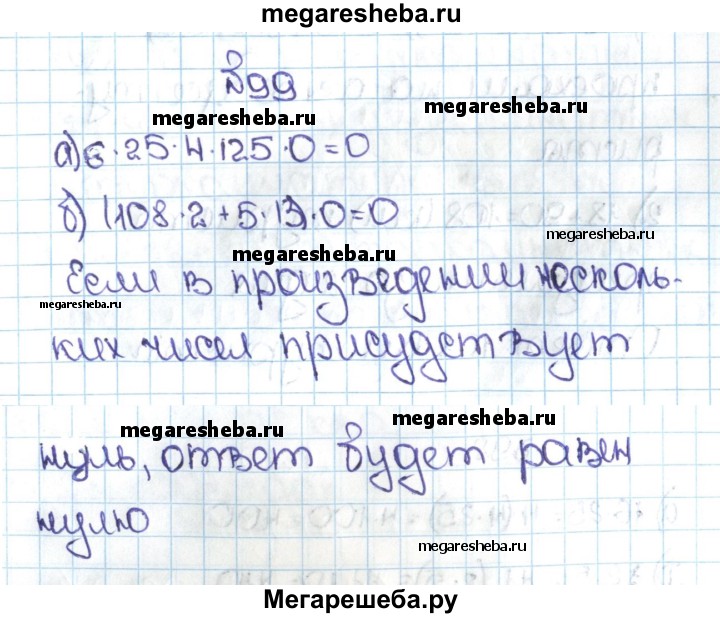 megaresheba.ru
№99
megaresheba.ru
megaresheba.ru
а) 6·25·4·125·0=0
б) (108·2+5·13)·0=0
megaresheba.ru
megaresheba.ru
Если в произведении несколь-
megaresheba.ru
ких чисел присудствует
megaresheba.ru
megaresheba.ru
нуль, ответ будет равен
нулю
megaresheba.ru
Мегарешеба.ру